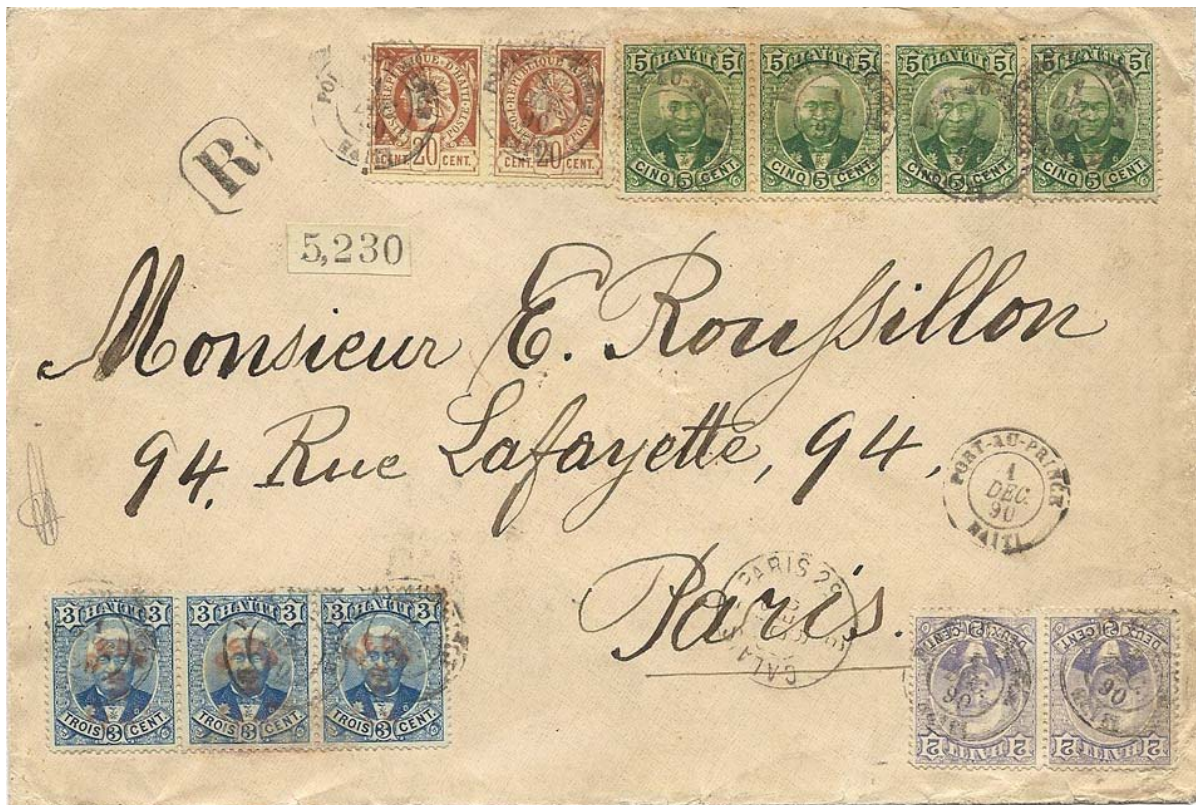 RÉPUBLIQUE D'HAITI POSTE CENT. 20 CENT.
RÉPUBLIQUE D'HAITI POSTE CENT. 20 CENT.
5 HAITI 5 CINQ 5 CENT.
5 HAITI 5 CINQ 5 CENT.
5 HAITI 5 CINQ 5 CENT.
5 HAITI 5 CINQ 5 CENT.
R
5,230
Monsieur E. Roussillon
94. Rue Lafayette, 94,
PORT-AU-PRINCE
1
DEC.
90
HAITI
PARIS
Paris.
3 HAITI 3 TROIS 3 CENT.
3 HAITI 3 TROIS 3 CENT.
3 HAITI 3 TROIS 3 CENT.
2 HAITI 2 DEUX 2 CENT.
2 HAITI 2 DEUX 2 CENT.